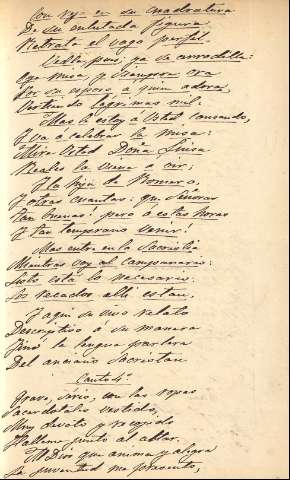 Con rya en su cuadratura
De su enlutada figura
Retrata el vago perfil.
Vedla, pues, ya se arrodilla:
Oye misa, y siempre ora
Por su esposo a quien adora,
Vertiendo lágrimas mil.
Mas le estoy á Usted cansando,
Y va á celebrar la misa:
Mire Usted Doña Luisa
la viene á oir;
Y la hija de Romero,
Y otras cuantas: que Señoras
tan buenas! pero á estas horas
Y tan temprano venir!
Mas entre en la Sacristía
Mientras voy al campanario:
Todo está lo necesario
Los recados allí están.
Y aquí su uso relato
Descriptivo á su manera
Finó la lengua parlera
Del anciano Sacristan.
Canto 4º
Grave, serio, con las ropas
Sacerdotales vestido,
Muy devoto y recogido
Halleme junto al altar.
"Al Dios que anima y alegra
La juventud me presento,